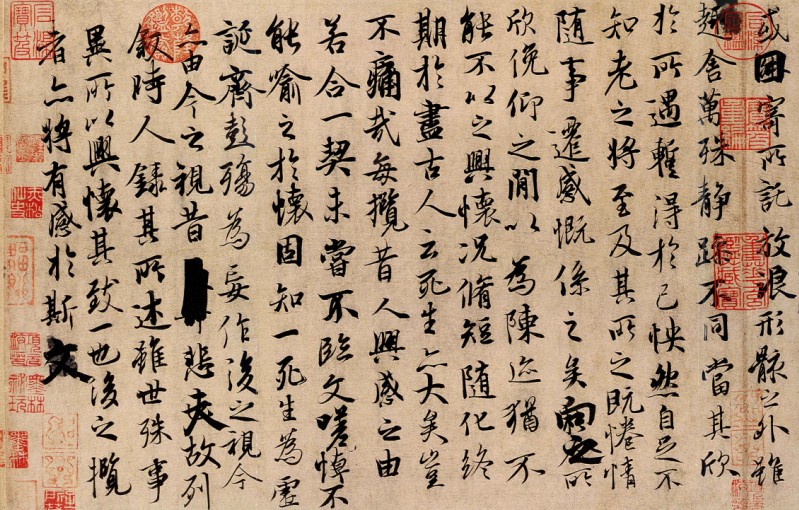 或因寄所託放浪形骸之外雖
趣舍萬殊静躁不同當其欣
於所遇暫得於己怏然自足不
知老之將至及其所之既惓情
随事遷感慨係之矣向之所
欣俛仰之閒以為陳迹猶不
能不以之興懷況脩短随化終
期於盡古人云死生亦大矣豈
不痛哉每攬昔人興感之由
若合一契未嘗不臨文嗟悼不
能喻之於懷固知一死生為虛
誕齊彭殤為妄作後之視今
亦由今之視昔悲夫故列
叙時人錄其所述雖世殊事
異所以興懷其致一也後之攬
者亦將有感於斯文